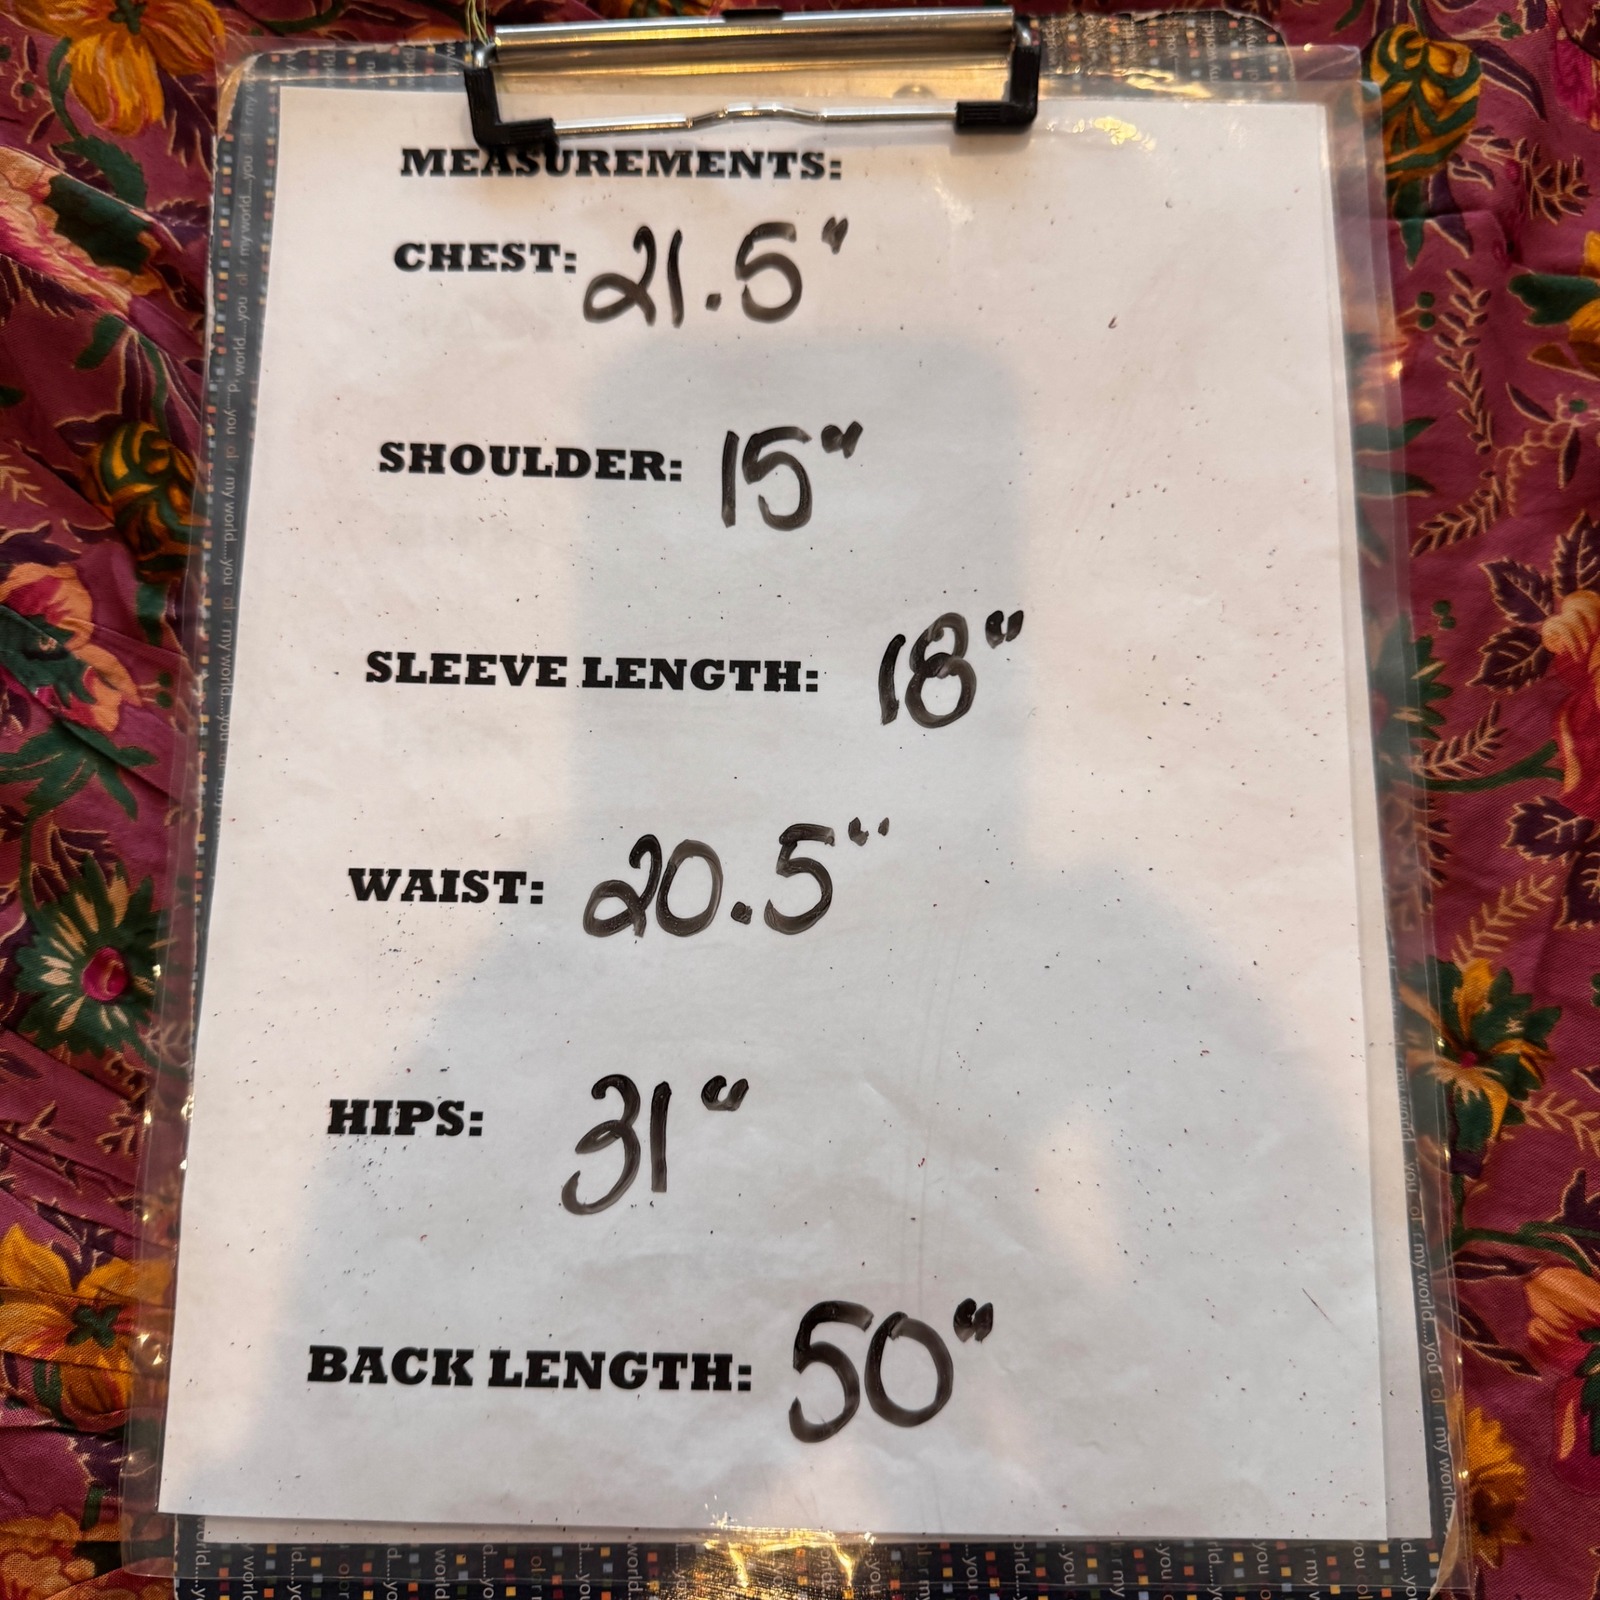 MEASUREMENTS:
CHEST: 21.5"
SHOULDER: 15"
SLEEVE LENGTH: 18"
WAIST: 20.5"
HIPS: 31"
BACK LENGTH: 50"